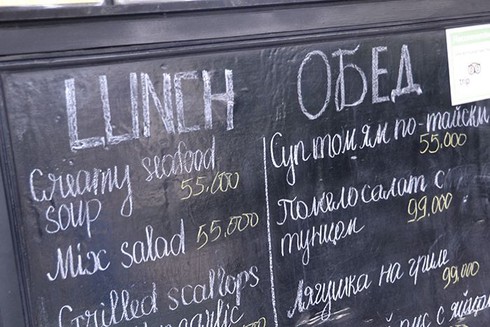 LUNCH
Creamy seafood
55.000
soup
Mix salad 55.000
Grilled scallops
garlic
ОБЕД
Суп том ям по-тайски
55.000
Помело салат с
99.000
тунцом
Лягушка на гриле
99.000
рис с яйцом
trip